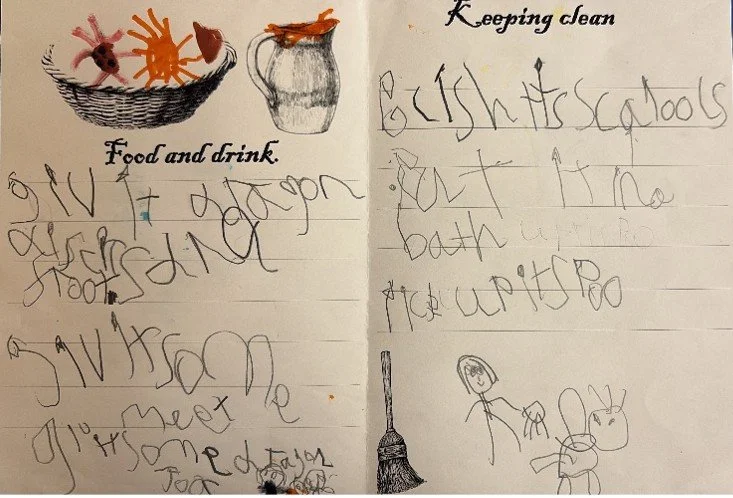 Food and drink.
giv it a dragon
froots
giv it some
meet
giv it some dragon
Keeping clean
Brush its scalools
Put it in a
bath
Pick up its Poo